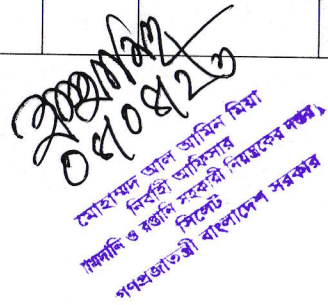 ০৪/০৪/২৩
মোহাম্মদ আল আমিন মিয়া
নির্বাহী অফিসার
আমদানি ও রপ্তানি সহকারী নিয়ন্ত্রকের দপ্তর
সিলেট
গণপ্রজাতন্ত্রী বাংলাদেশ সরকার